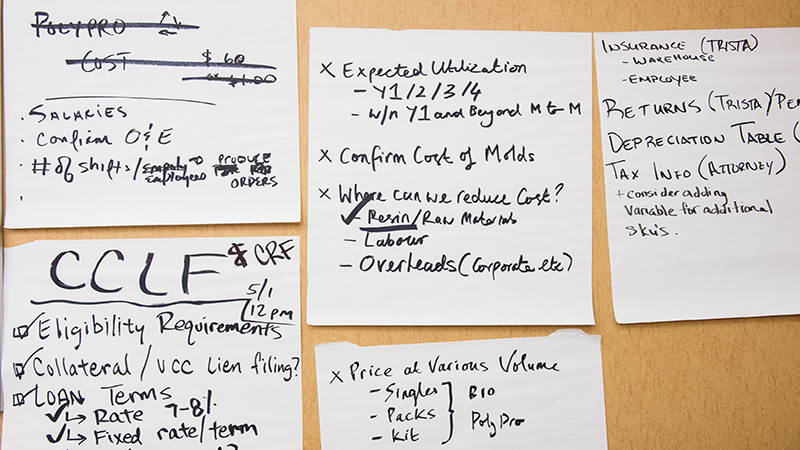 POLYPRO
COST $.60
or $1.00
. SALARIES
. Confirm O&E
. # of Shifts/Employees to PRODUCE
ORDERS
CCLF & CRF
5/1
12 pm
Eligibility Requirements
Collateral / UCC Lien filing?
LOAN Terms
↳ Rate 7-8%
↳ Fixed rate/term
X Expected Utilization
- Y1/2/3/4
- w/n Y1 and Beyond M to M
X Confirm Cost of Molds
X Where can we reduce Cost?
✓ - Resin/Raw Materials
- Labour
- Overheads (Corporate etc)
X Price at Various Volume
- Singles
- Packs
- Kit
BIO
PolyPro
INSURANCE (TRISTA)
- WAREHOUSE
- EMPLOYEE
RETURNS (TRISTA)/PE
DEPRECIATION TABLE (
TAX INFO (ATTORNEY)
+ consider adding
Variable for additional
SKUs.